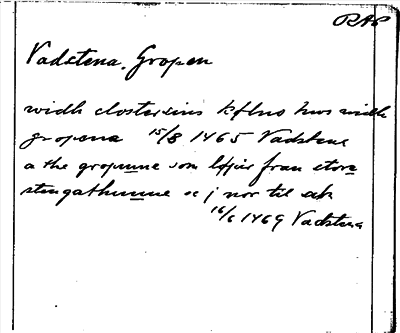 RAP
Vadstena, Gropen
widh clostersins kflns hws widh
gropena 15/8 1465 Vadstena
a the gropunne som löpir fran store
stengathunne oc j nor til ab
16/6 1469 Vadstena